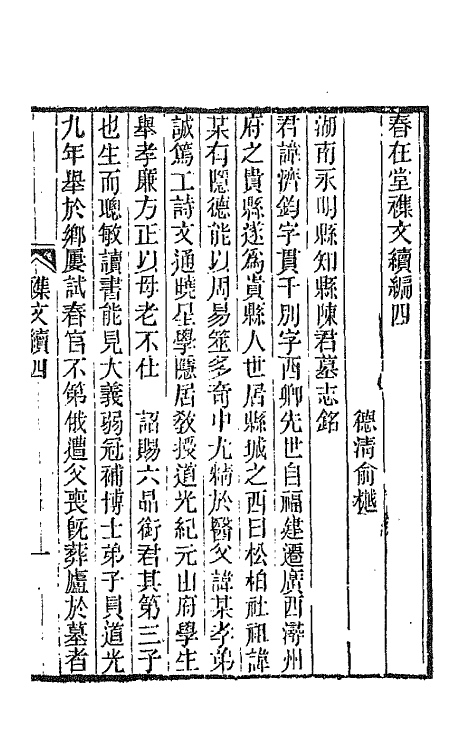 春在堂襍文續編四
德清俞樾
湖南永明縣知縣陳君墓志銘
君諱濟鈞字貫千別字西卿先世自福建遷廣西潯州
府之貴縣遂為貴縣人世居縣城之西曰松柏社祖諱
某有隱德能以周易筮多奇中尤精於醫父諱某孝弟
誠篤工詩文通曉星學隱居敎授道光紀元由府學生
舉孝廉方正以母老不仕 詔賜六品銜君其第三子
也生而聰敏讀書能見大義弱冠補博士弟子員道光
九年舉於鄉屢試春官不第俄遭父喪旣葬廬於墓者
襍文續四
一